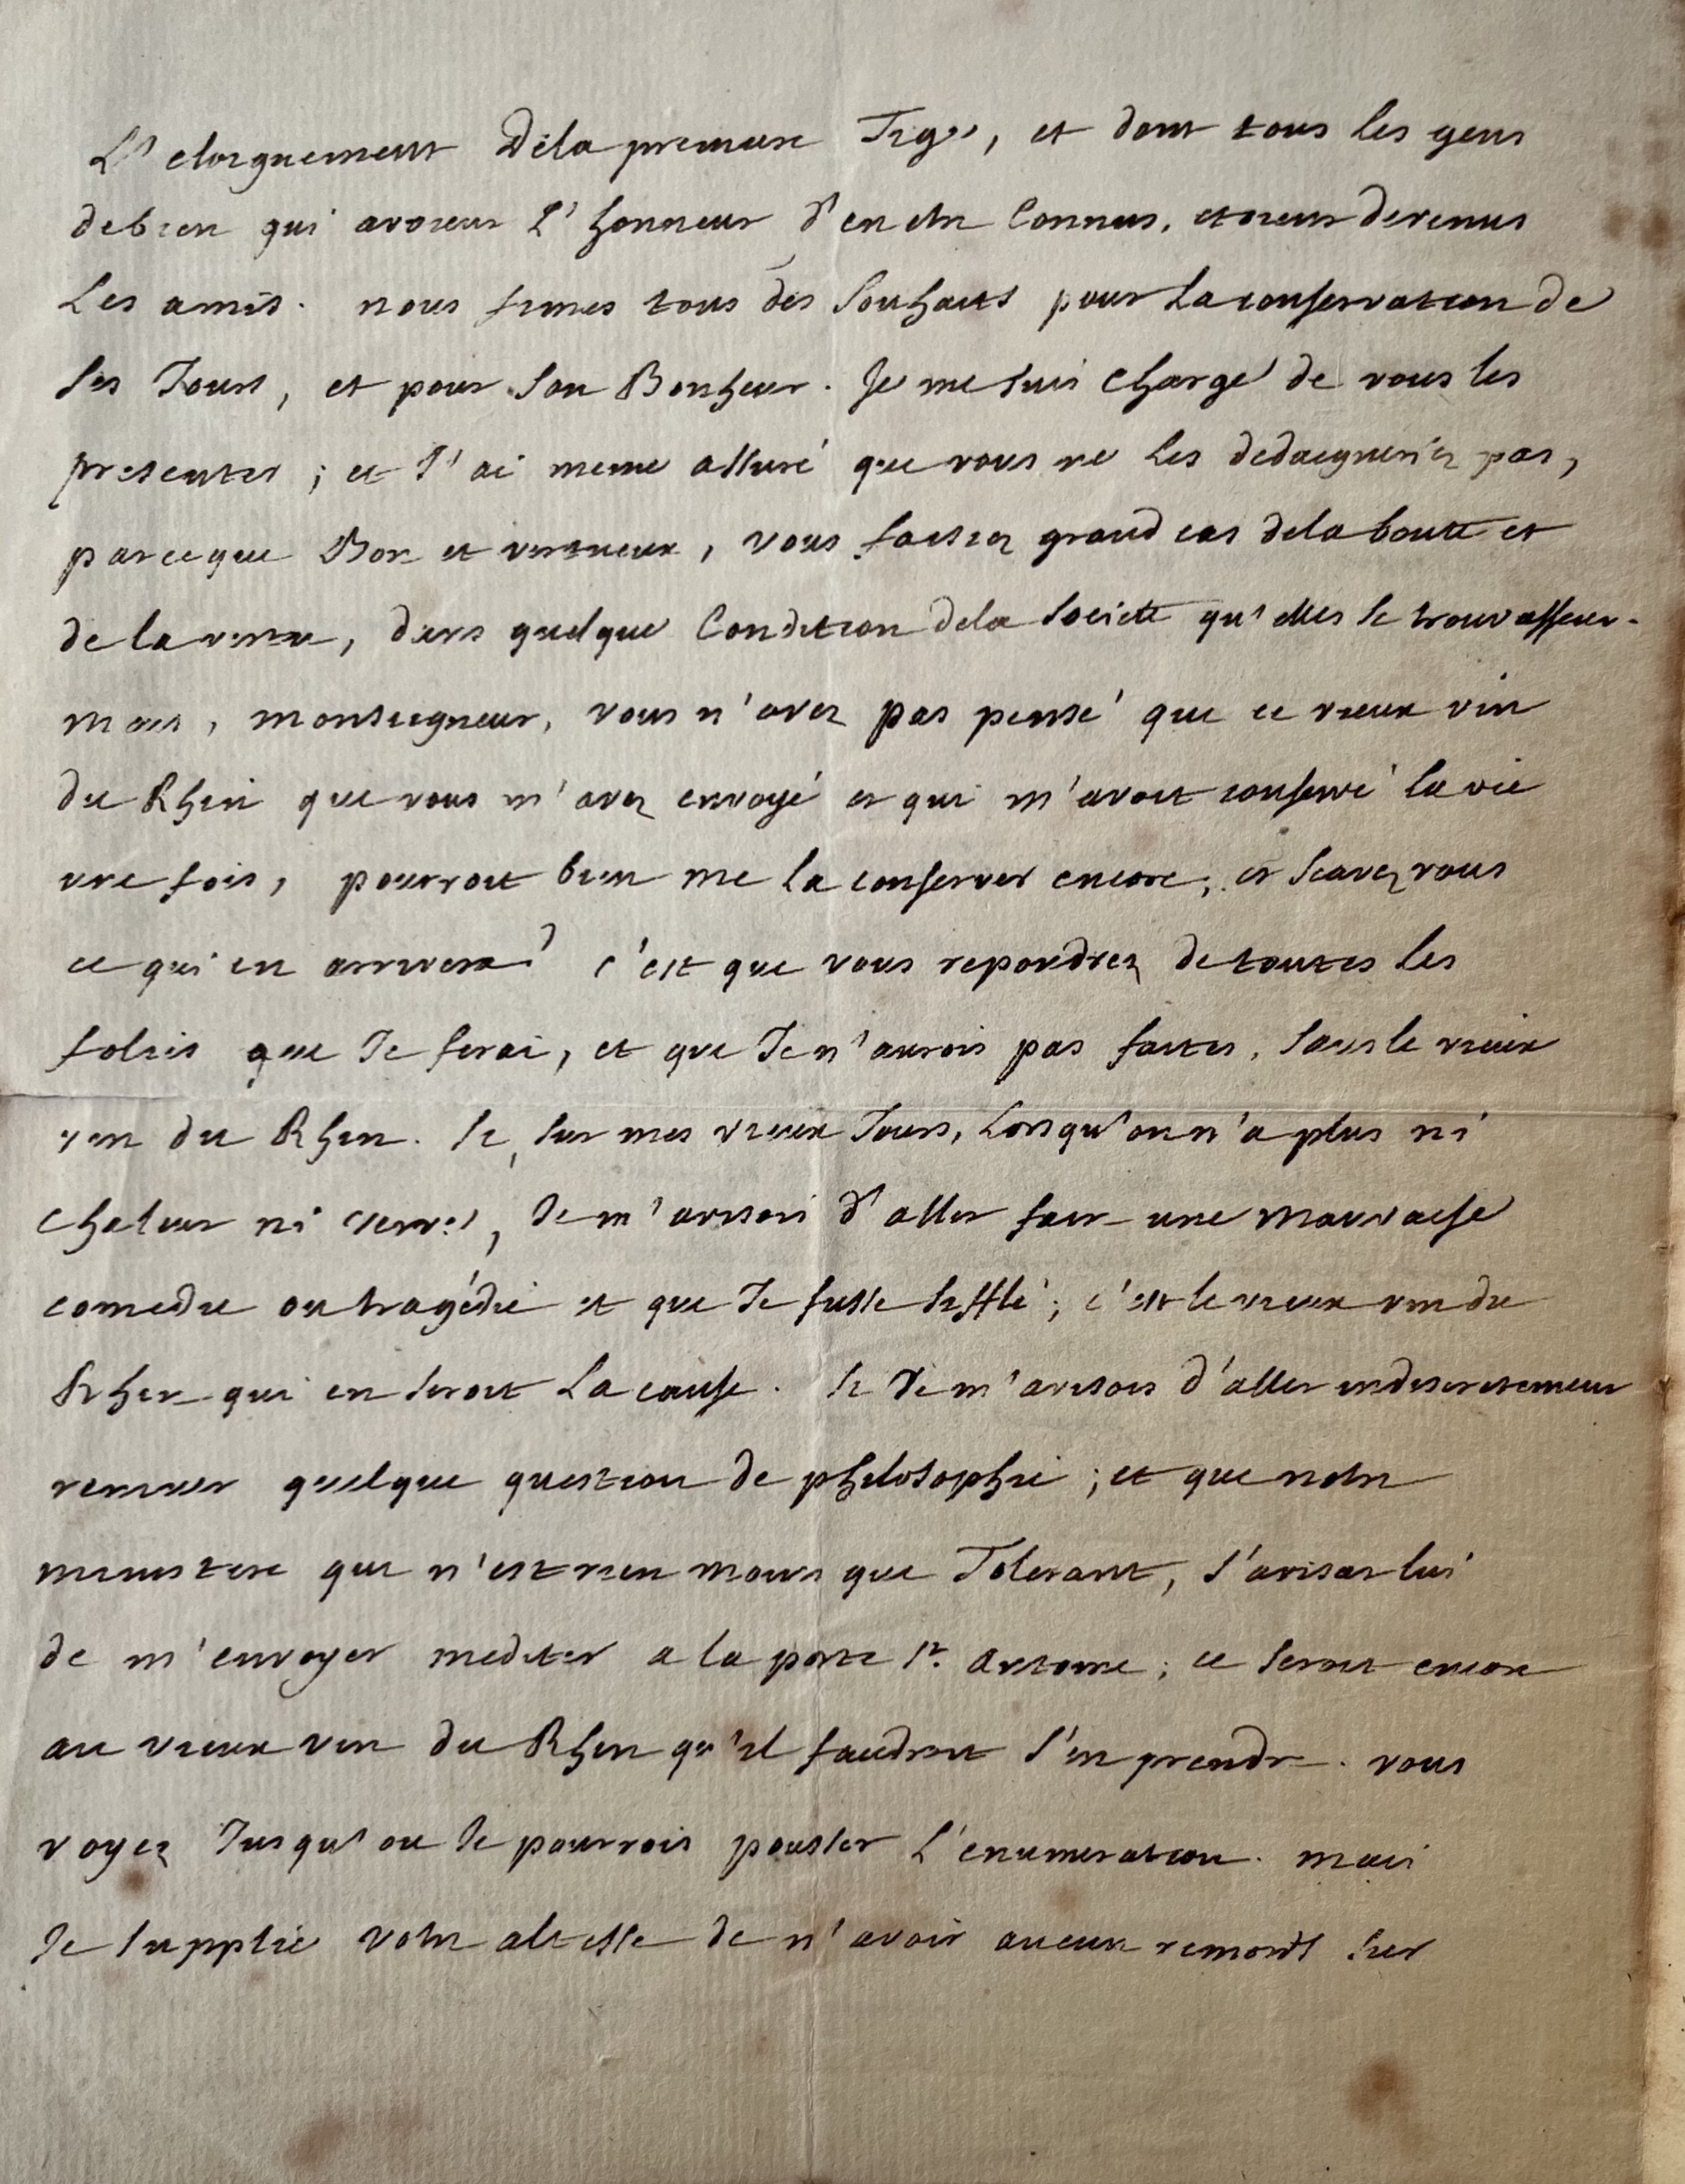 L'eloignement dela premiere Tige, et dont tous les gens
debien qui avoient L'honneur d'en etre Connus, etoient devenus
Les amis. nous fimes tous des souhaits pour La conservation de
ses Jours, et pour son Bonheur. Je me suis chargé de vous les
presenter ; et J'ai meme assuré que vous ne Les dedaigneriez pas,
parceque Bon et vertueux, vous faisiez grand cas dela bonté et
de la vertu, dans quelque Condition dela Societé qu'elles se trouvassent.
mais, monseigneur, vous n'avez pas pensé que ce vieux vin
du Rhin que vous m'avez envoyé et qui m'avoit conservé la vie
une fois, pourroit bien me La conserver encore ; et scavez vous
ce qui en arrivera ? c'est que vous repondrez de toutes Les
folies que Je ferai, et que Je n'aurois pas faites, sans le vieux
vin du Rhin. si, sur mes vieux Jours, Lorsqu'on n'a plus ni
chaleur ni verve, Je m'avisois d'aller faire une mauvaise
comedie ou tragédie et que Je fusse sifflé ; c'est le vieux vin du
Rhin qui en seroit La cause. si Je m'avisois d'aller indiscretement
remuer quelque question de philosophie ; et que notre
ministere qui n'est rien moins que Tolerant, s'avisat lui
de m'envoyer mediter a la porte St. Antoine ; ce seroit encore
au vieux vin du Rhin qu'il faudroit s'en prendre. vous
voyez Jusqu'ou Je pourrois pousser L'enumeration. mais
Je supplie votre altesse de n'avoir aucun remords sur